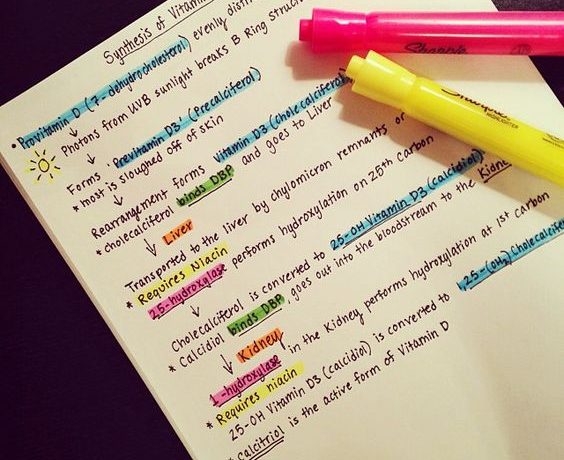 Synthesis of Vitamin
• Provitamin D (7-dehydrocholesterol) evenly
Photons from UVB sunlight breaks B Ring
Forms 'Previtamin D3' (Precalciferol)
* most is sloughed off of skin
Rearrangement forms Vitamin D3 (Cholecalciferol)
* cholecalciferol binds DBP and goes to Liver
Liver
Transported to the liver by chylomicron remnants or
* Requires Niacin
25-hydroxylase performs hydroxylation on 25th carbon
Cholecalciferol is converted to 25-OH Vitamin D3 (calcidiol)
* Calcidiol binds DBP, goes out into the bloodstream to the
Kidney
1-hydroxylase in the Kidney performs hydroxylation at 1st carbon
* Requires niacin
25-OH Vitamin D3 (calcidiol) is converted to 1,25-(OH2) Cholecalcifer
* Calcitriol is the active form of Vitamin D
Sharpie
Sharpie